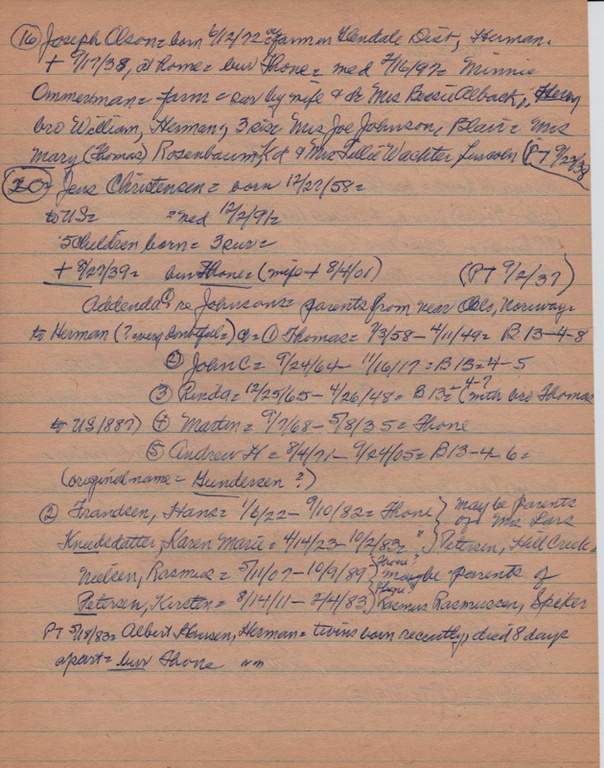 (16) Joseph Olson = born 6/12/72 = farm on Glendale Dist, Herman.
+ 9/17/38, at home = bur Thone = med 2/16/97 = Minnie
Ommerman = farm = sur by wife & dr Mrs Alback,
bro William, Herman, 3 sis Mrs Joe Johnson, Blair = Mrs
Mary (Thomas) Rosenbaum, & Mrs Lillie Wachter Lincoln (PT 9/22/38
(20) Jens Christensen = born 12/27/58 =
to US = = med 12/2/91 =
5 children born = 3 sur =
+ 8/27/39 = bur Thone = (wife + 8/4/01) (PT 9/2/37)
Addenda re Johnsons = parents from near Oslo, Norway =
to Herman (? very doubtful =) (1) Thomas = 7/3/58 - 4/11/49 = B 13-4-8
(2) John C = 9/24/64 - 11/16/17 = B 13=4-5
(3) Renda = 12/25/65 - 4/26/48 = B 13 = 4-? (with bro Thomas
to US 1887) (4) Martin = 9/7/68 - 5/8/35 = Thone
(5) Andrew H = 8/4/71 - 9/24/05 = B 13-4-6 =
(original name = Gundersen ?)
(2) Frandsen, Hans = 1/6/22 - 9/10/82 = Thone } may be parents
of Mrs Lars
Knudsdatter, Karen Marie = 4/14/23 - 10/2/83 = " } Petersen, Hill Creek =
Nielsen, Rasmus = 5/11/07 - 10/9/89 { Thone? maybe parents of
Petersen, Kirsten = 8/14/11 - 2/4/83 } Rasmus Rasmussen, Spiker
PT 5/18/83 = Albert, Herman = twins born recently, died 8 days
apart = bur Thone nm